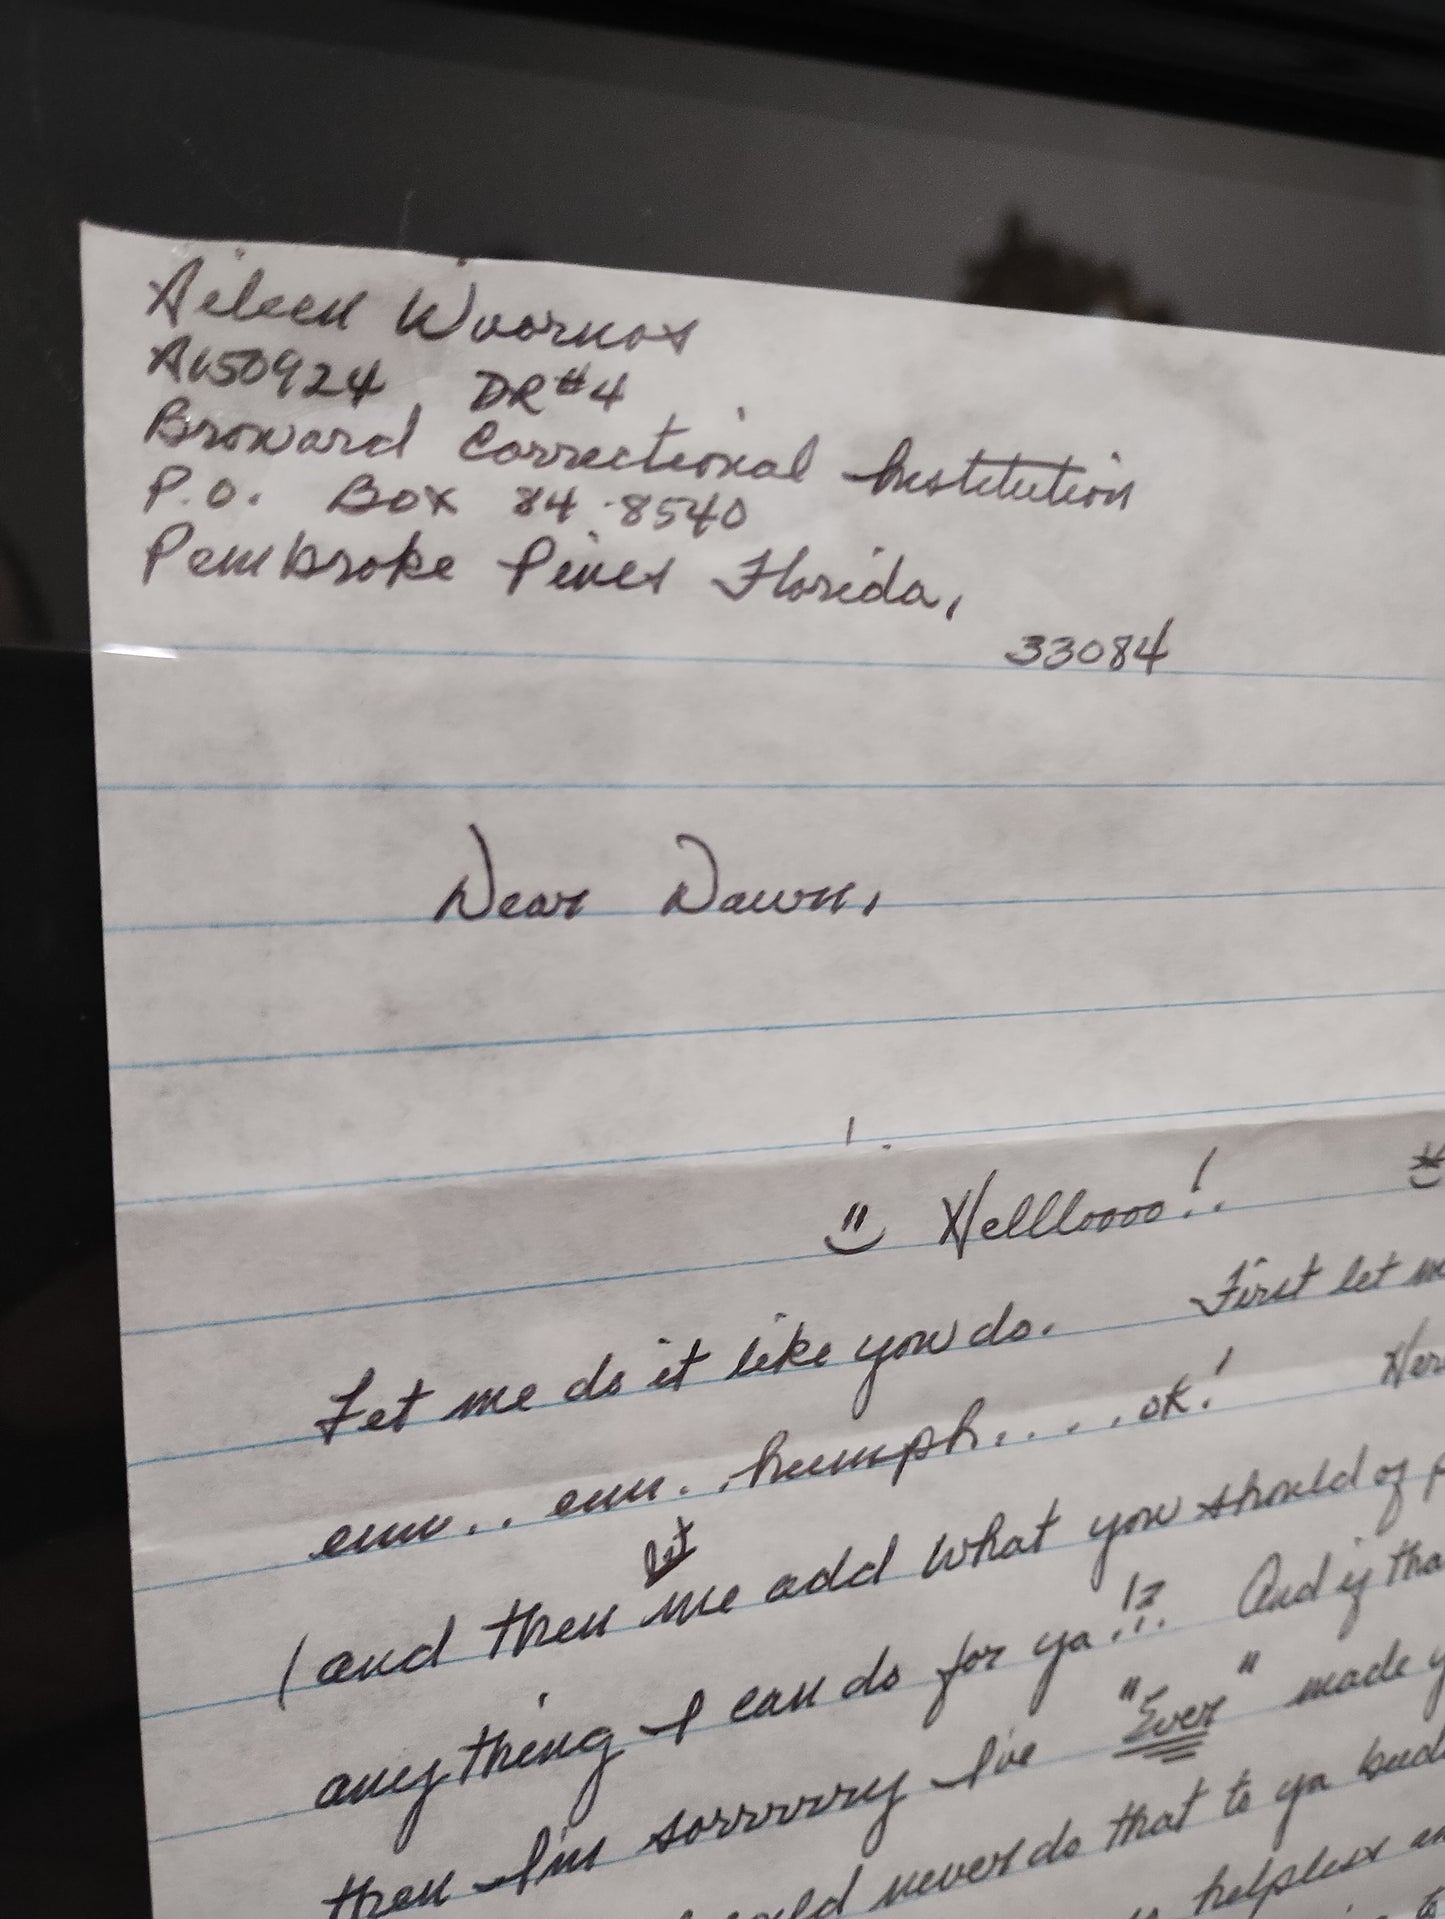 Aileen Wuornos
A150924 DR#4
Broward Correctional Institution
P.O. Box 84-8540
Pembroke Pines Florida,
33084
Dear Dawn,
Hellloooo!
Let me do it like you do. First let
emm.. emm.. humph.... ok!
(and then let me add what you should of
anything I can do for ya!? And if
then I'm sorrrrry I've "Ever" made
never do that to ya
helpless
to